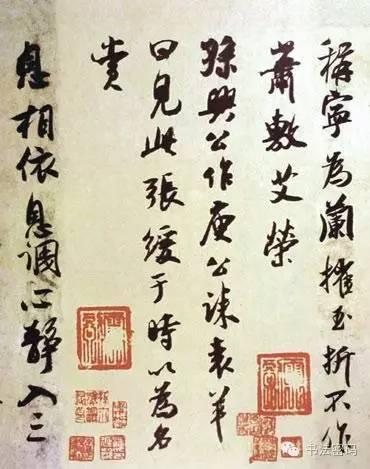 稱寧為蘭摧玉折不作
蕭敷艾榮
孫興公作庾公誄袁羊
曰見此張緩于時以為名
賞
息相依息調心靜入三
书法密码